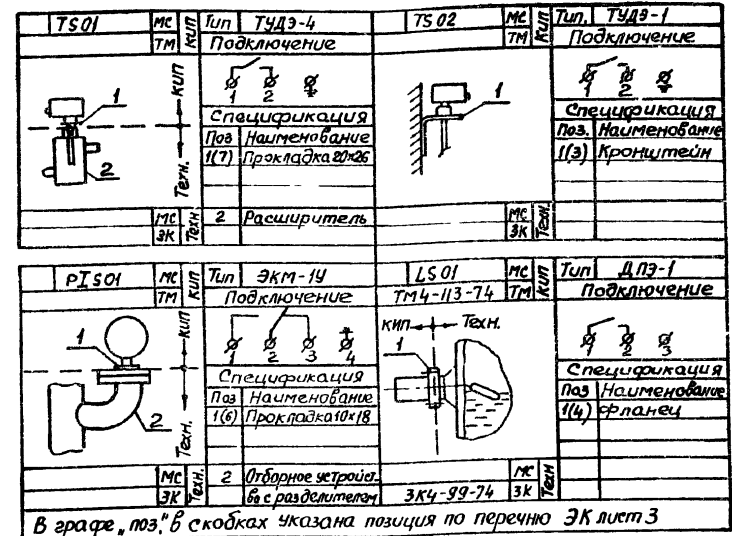 TS01 МС КИП Тип ТУДЭ-4
ТМ Подключение
1 2
1
КИП
Техн.
2
Спецификация
Поз Наименование
1(7) Прокладка 20×26
МС Техн. 2 Расширитель
ЗК
TS02 МС КИП Тип. ТУДЭ-1
ТМ Подключение
1 2
1
Спецификация
Поз. Наименование
1(3) Кронштейн
МС Техн.
ЗК
PIS01 МС КИП Тип ЭКМ-1У
ТМ Подключение
1 2 3 4
1
КИП
Техн.
2
Спецификация
Поз Наименование
1(6) Прокладка 10×18
МС Техн. 2 Отборное устройст-
ЗК во с разделителем
LS01 МС КИП Тип ДПЭ-1
ТМ4-113-74 ТМ Подключение
КИП Техн.
1
1 2 3
Спецификация
Поз Наименование
1(4) Фланец
МС Техн
ЗК4-99-74 ЗК
В графе „поз." в скобках указана позиция по перечню ЭК лист 3